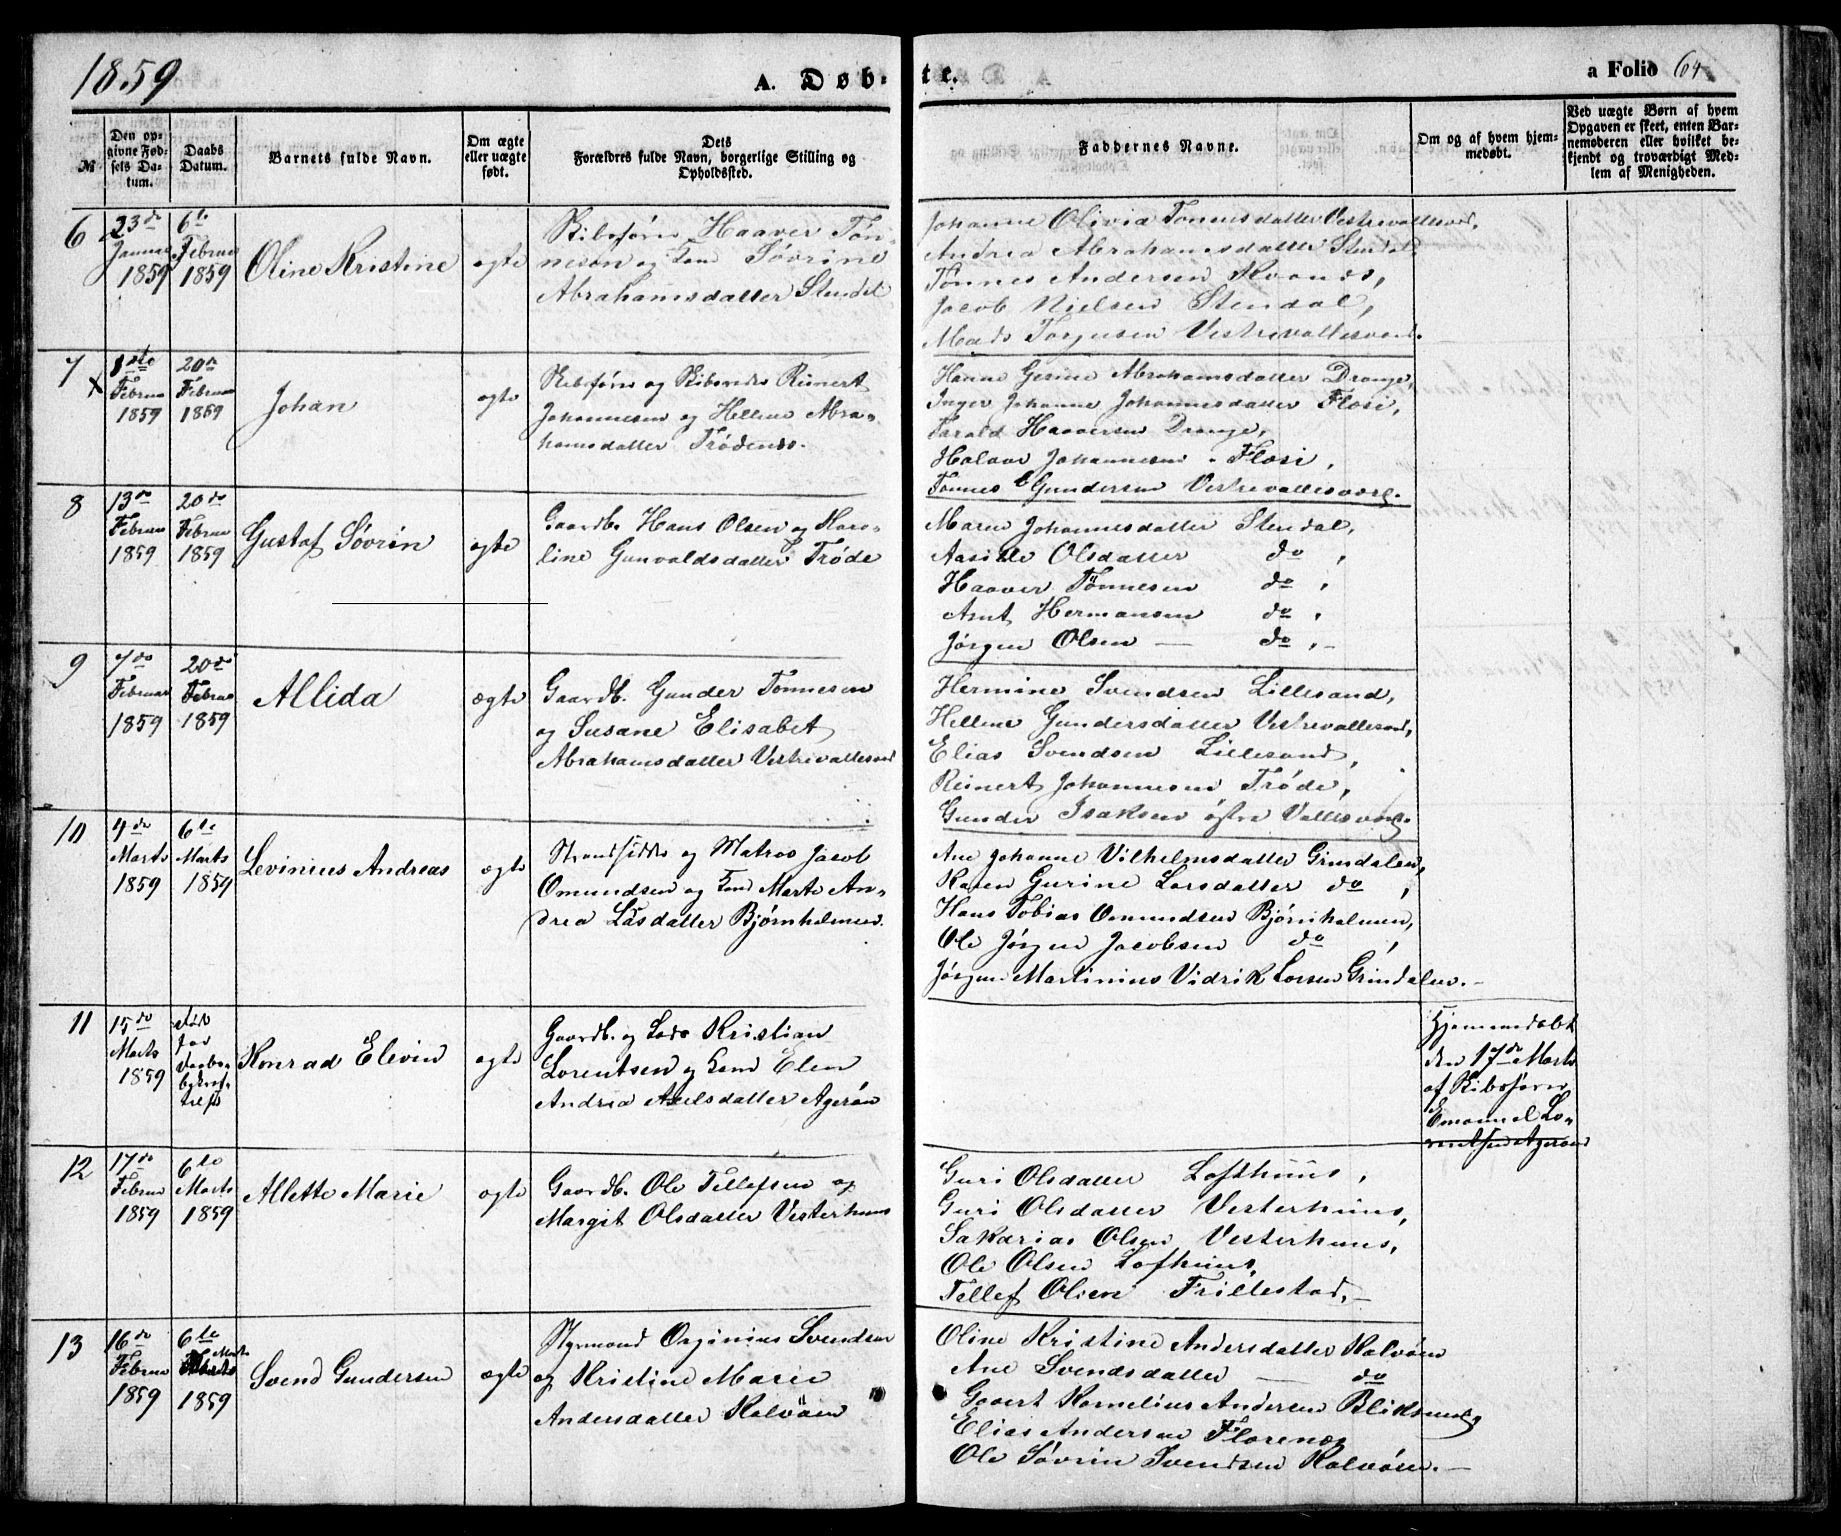 1859
A. Døb-
te.
a Folio 64
№
Den op-
givne Fød-
sels Da-
tum.
Daabs
Datum.
Barnets fulde Navn.
Om ægte
eller uægte
født.
Dets
Forældres fulde Navn, borgerlige Stilling og
Opholdssted.
Faddernes Navne.
Om og af hvem hjem-
medøbt.
Ved uægte Børn af hvem
Opgaven er skeet, enten Bar-
nemoderen eller hvilket be-
kjendt og troværdigt Med-
lem af Menigheden.
6
23de
Januar
1859
6te
Februar
1859
Oline Kristine
ægte
Skibsfører Haaver Tøn-
nesen og Søvrine
Abrahamsdatter Stendal
Johanne Olivia Tønnesdatter Vestrevallesverd,
Andrea Abrahamsdatter Stendal
Tønnes Andersen
Jacob Nielsen Stendal,
Mads Torjusen Vestrevallesverd.
7
x
1ste
Februar
1859
20de
Februar
1859
Johan
ægte
Skibsfører og Reinert
Johannesen og Hellene Abra-
hamsdatter
Hanne Gesine Abrahamsdatter Drange,
Inger Johanne Johannesdatter Flosi,
Tarald Haaversen Drange,
Halvor Johannesen Flosi,
Tønnes Gundersen Vestrevallesverd.
8
13de
Februar
1859
20de
Februar
1859
Gustaf Søvrin
ægte
Gaardb. Hans Olsen og Karo-
line Gunvaldsdatter Trøde
Maren Johannesdatter Stendal,
Aasille Olsdatter do,
Haaver Tønnesen do,
Arnt Hermansen do,
Jørgen Olsen — do,-
9
7de
Februar
1859
20de
Februar
1859
Allida
ægte
Gaardb. Gunder Tønnesen
og Susane Elisabet
Abrahamsdatter Vestrevallesverd
Hermine Svendsen Lillesand,
Hellene Gundersdatter Vestrevallesverd,
Elias Svendsen Lillesand,
Reinert Johannesen Trøde,
Gunder Isaksen østre Vallesverd.
10
4de
Marts
1859
6te
Marts
1859
Levinius Andreas
ægte
Strandsidder og Matros Jacob
Omundsen og Marte An-
drea Lasdatter Bjørnholmen.
Ane Johanne Vilhelmsdatter Grindalen,
Karen Gurine Larsdatter do,
Hans Tobias Omundsen Bjørnholmen,
Ole Jørgen Jacobsen do,
Jørgen Martinius Vidrik Larsen Grindalen.-
11
15de
Marts
1859
død
før
Daabs
bekræf-
telse
Konrad Elevin
ægte
Gaardb. og Lods Kristian
Lorentsen og Elen
Andrea Axelsdatter Agerøn
Hjemmedøbt
den 17de Marts
af Skibsfører
Emanuel Lo-
rentsen Agerøen
12
17de
Februar
1859
6te
Marts
1859
Allette Marie
ægte
Gaardb. Ole Tellefsen og
Margit Olsdatter Vesterhuus
Guri Olsdatter Lofthuus,
Guri Olsdatter Vesterhuus,
Sakarias Olsen Vesterhuus,
Ole Olsen Lofthuus,
Tellef Olsen Frillestad,-
13
16de
Februar
1859
6te
Marts
1859
Svend Gundersen
ægte
Styrmand Orginius Svendsen
og Kristine Marie
Andersdatter Kalvøen
Oline Kristine Andersdatter Kalvøen
Ane Svendsdatter — do
Govert Kornelius Andersen
Elias Andersen Florenæs
Ole Søvrin Svendsen Kalvøen.-